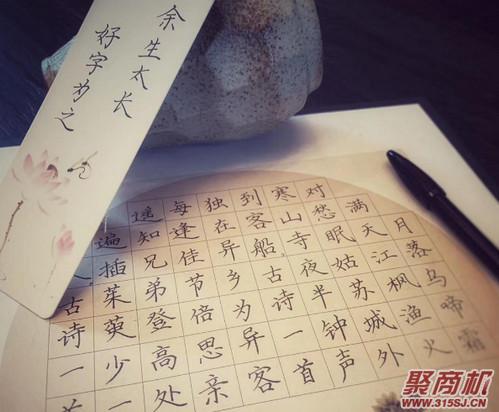 余生太长
好字为之
月落乌啼霜
满天江枫渔火
对愁眠姑苏城外
寒山寺夜半钟声
到客船,古诗一首
独在异乡为异客
每逢佳节倍思亲
遥知兄弟登高处
遍插茱萸少一
古诗一
聚商机
WWW.315SJ.CN